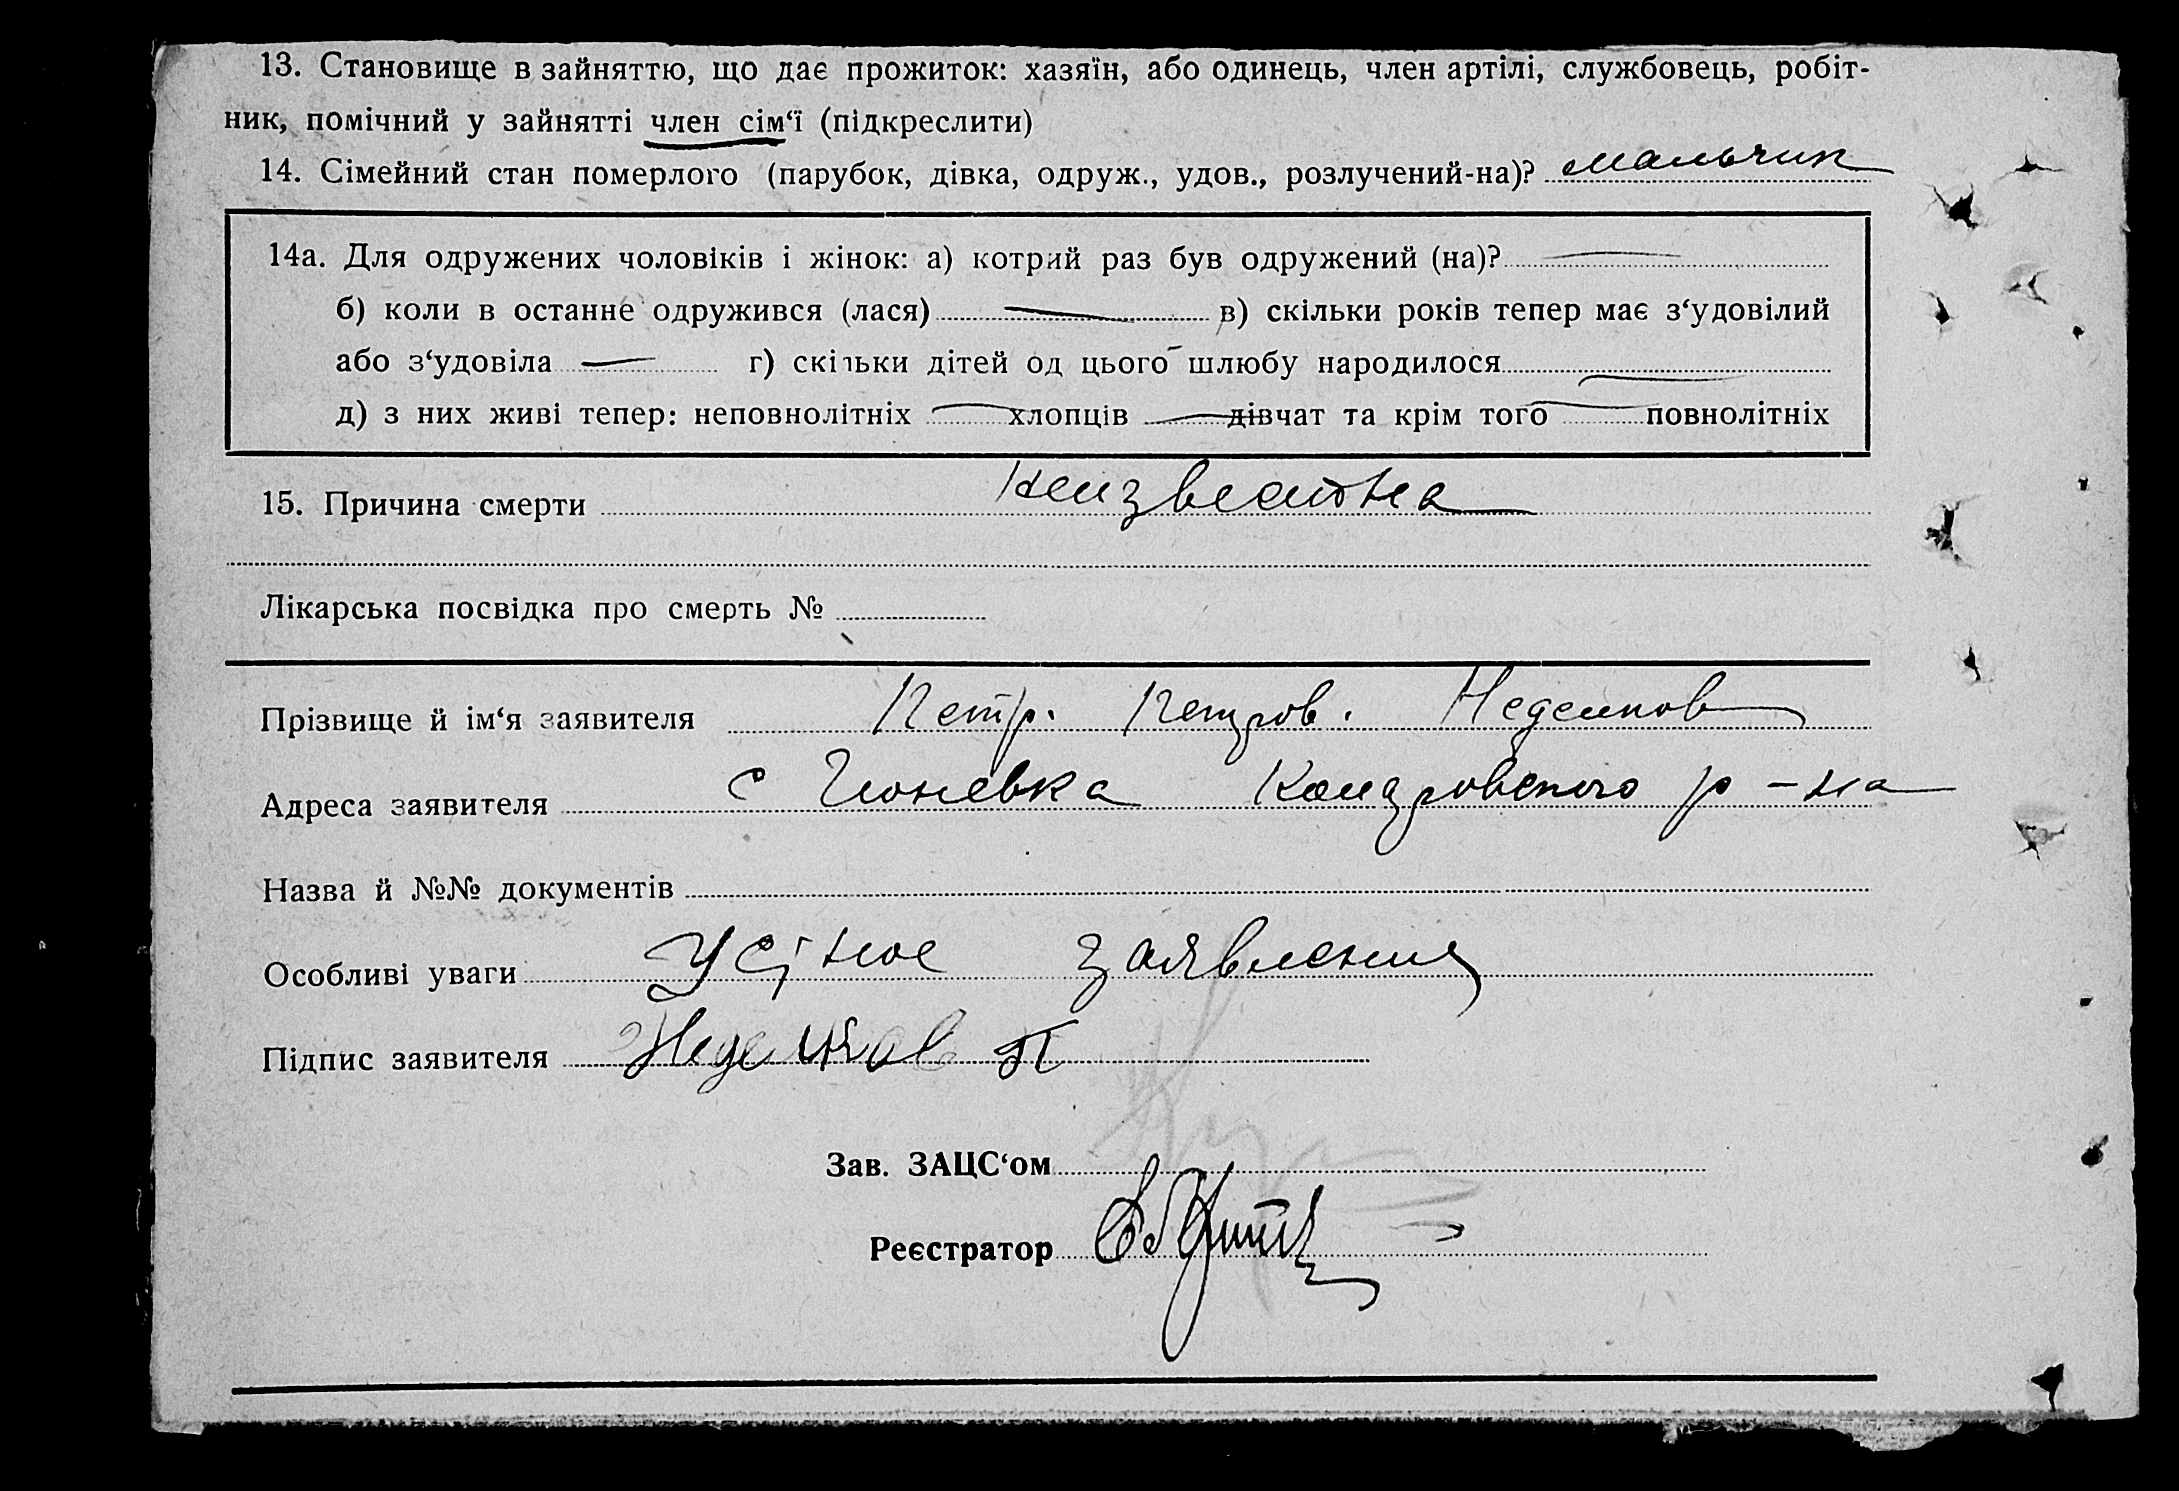 13. Становище в зайняттю, що дає прожиток: хазяїн, або одинець, член артілі, службовець, робіт-
ник, помічний у зайнятті член сім‘ї (підкреслити)
14. Сімейний стан померлого (парубок, дівка, одруж., удов., розлучений-на)? мальчик
14а. Для одружених чоловіків і жінок: а) котрий раз був одружений (на)?
б) коли в останнє одружився (лася) в) скільки років тепер має з‘удовілий
або з‘удовіла г) скільки дітей од цього шлюбу народилося
д) з них живі тепер: неповнолітніх хлопців дівчат та крім того повнолітніх
15. Причина смерти неизвестна
Лікарська посвідка про смерть №
Прізвище й ім‘я заявителя Петр. Петров.
Адреса заявителя с р-на
Назва й №№ документів
Особливі уваги Устное заявления
Підпис заявителя П
Зав. ЗАЦС‘ом
Реєстратор